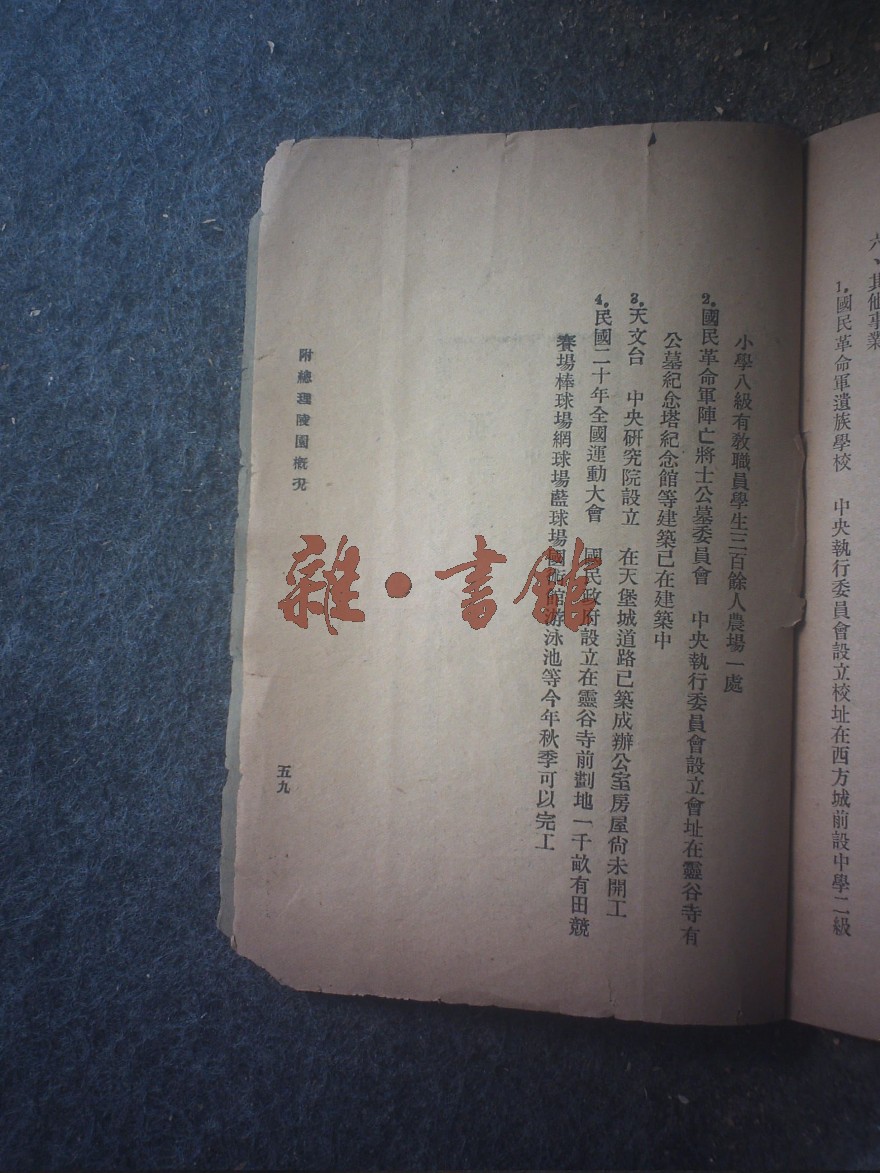 六、其他事業
1.國民革命軍遺族學校　中央執行委員會設立校址在西方城前設中學二級
小學八級有教職員學生三百餘人農場一處
2.國民革命軍陣亡將士公墓委員會　中央執行委員會設立會址在靈谷寺有
公墓紀念塔紀念館等建築已在建築中
3.天文台　中央研究院設立　在天堡城道路已築成辦公室房屋尙未開工
4.民國二十年全國運動大會　國民政府設立在靈谷寺前劃地一千畝有田競
賽場棒球場網球場藍球場國術館游泳池等今年秋季可以完工
附總理陵園概況
五九
雜·書館